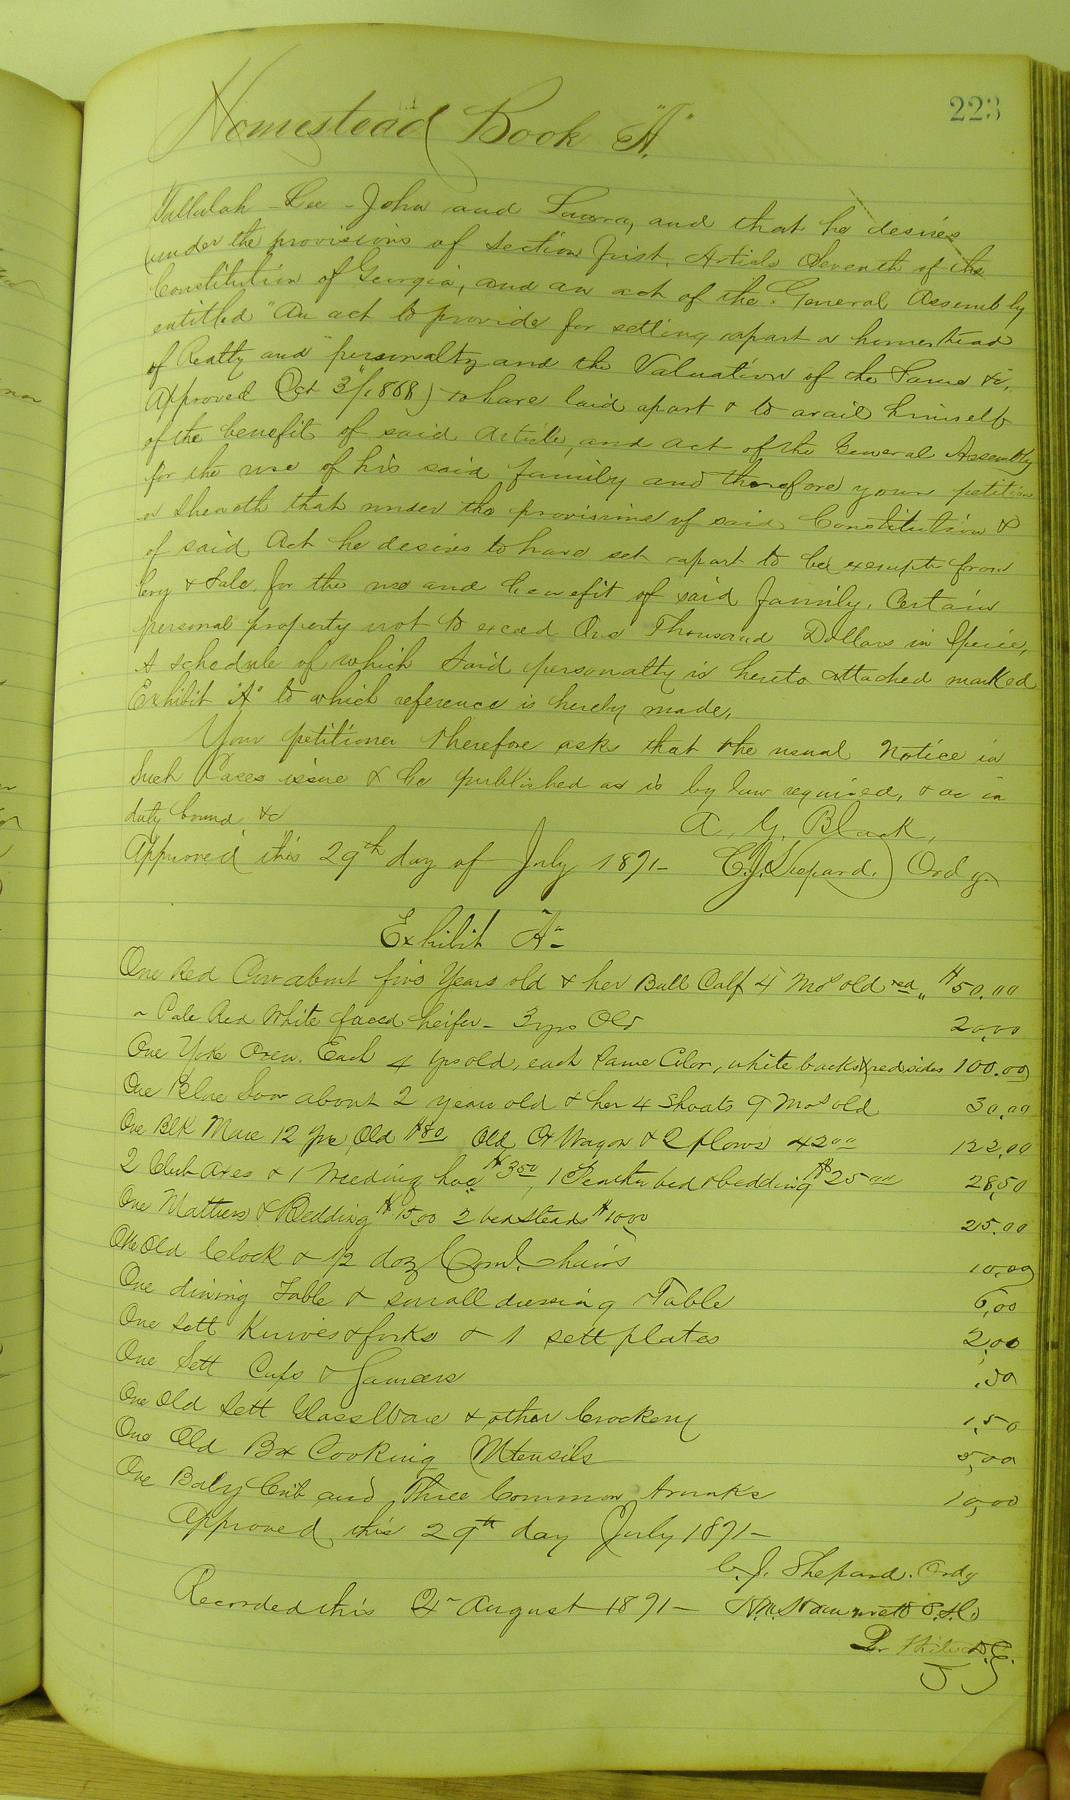 223
Homestead Book "A."
Tallulah - Lee - John and and that he desires
under the provisions of Section first, Article Seventh of the
Constitution of Georgia, and an act of the General Assembly
entitled "An act to provide for setting apart a homestead
of Realty and personalty and the Valuation of the Same &c,
Approved Oct 3d/1868) to have laid apart & to avail himself
of the benefit of said article, and act of the General Assembly
for the use of his said family and therefore your petition
er sheweth that under the provisions of said Constitution &
of said Act he desires to have set apart to be exempt from
levy & Sale, for the use and benefit of said family. Certain
personal property not to exceed One Thousand Dollars in Specie,
A schedule of which Said personalty is hereto attached marked
Exhibit "A" to which reference is hereby made,
Your petitioner therefore asks that the usual Notice in
Such Cases issue & be published as is by law required, & as in
duty bound &c A. G. Black,
Approved this 29th day of July 1891- C. J. Shepard. Ordy
Exhibit "A"-
One Red Cow about five Years old & her Bull Calf 4 Mos old red " $50.00
" Pale Red White faced heifer - 3 yrs Old 20,00
One Yoke Oxen. Each 4 yrs old, each Same Color, white backs & red sides 100.00
One Blue Sow about 2 years old & her 4 Shoats 9 Mos old 30,00
One Blk Mare 12 yrs Old $80 Old Ox Wagon & 2 plows 4200 122,00
2 Club Axes & 1 Weeding hoe $350, 1 Feather bed & bedding $2500 28,50
One Mattress & Bedding $15,00 2 bedsteads $1000 25.00
One Old Clock & 1/2 doz Com. chairs 10,00
One dining Table & small dressing Table 6,00
One Sett Knives & forks & 1 sett plates 2,00
One Sett Cups & Saucers .50
One Old Sett Glass Ware & other Crockery 1,50
One Old Box Cooking Utensils 5,00
One Baby Crib and Three Common trunks 10,00
Approved this 29th day July 1891-
C. J. Shepard. Ordy
Recorded this August 1891-